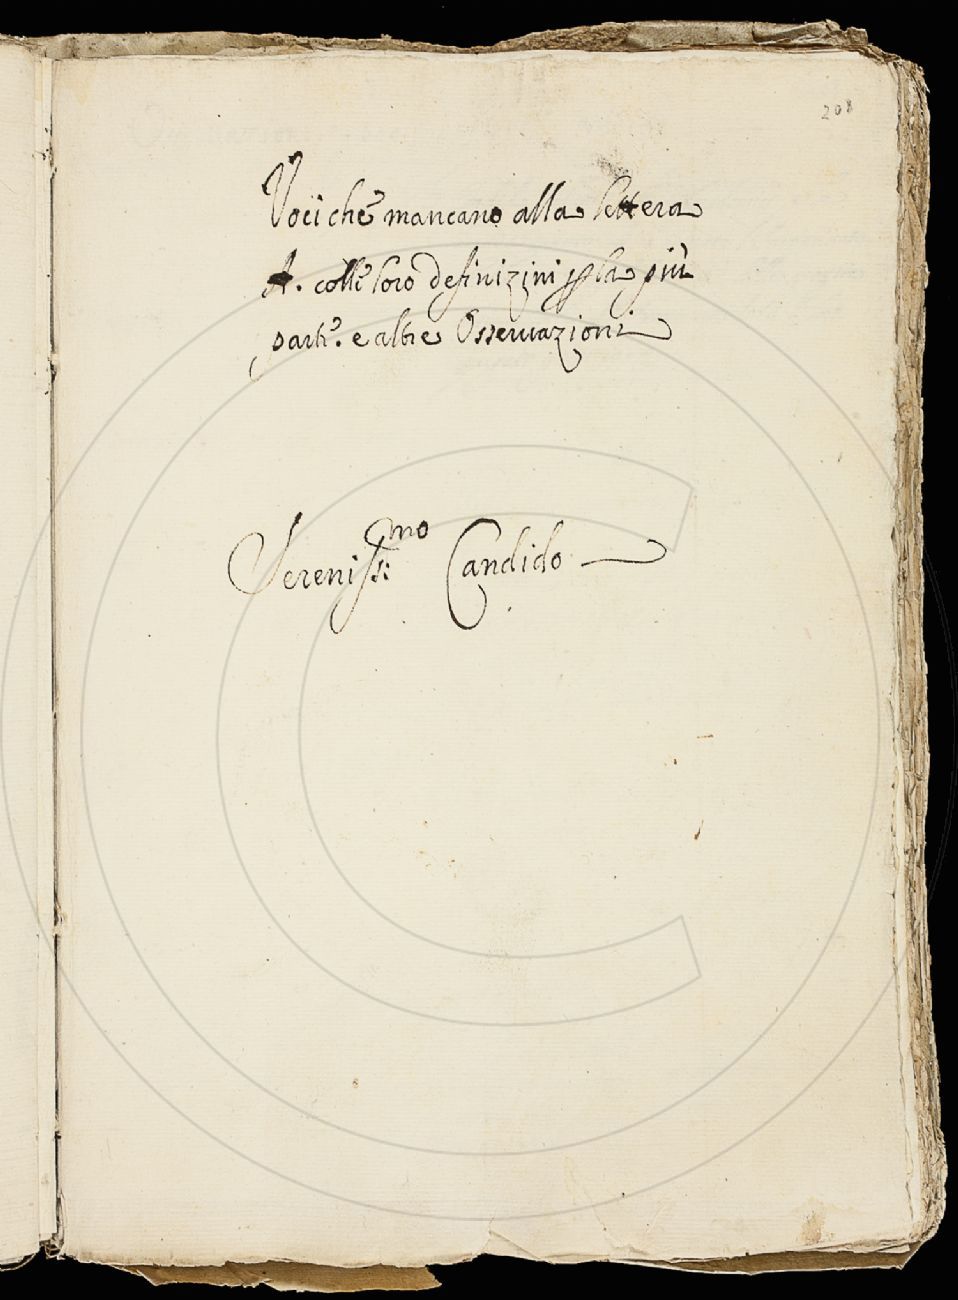 208
Voci che mancano alla lettera
A. colle loro definizini p la più
parte. e altre Osservazioni
Sereniss:mo Candido